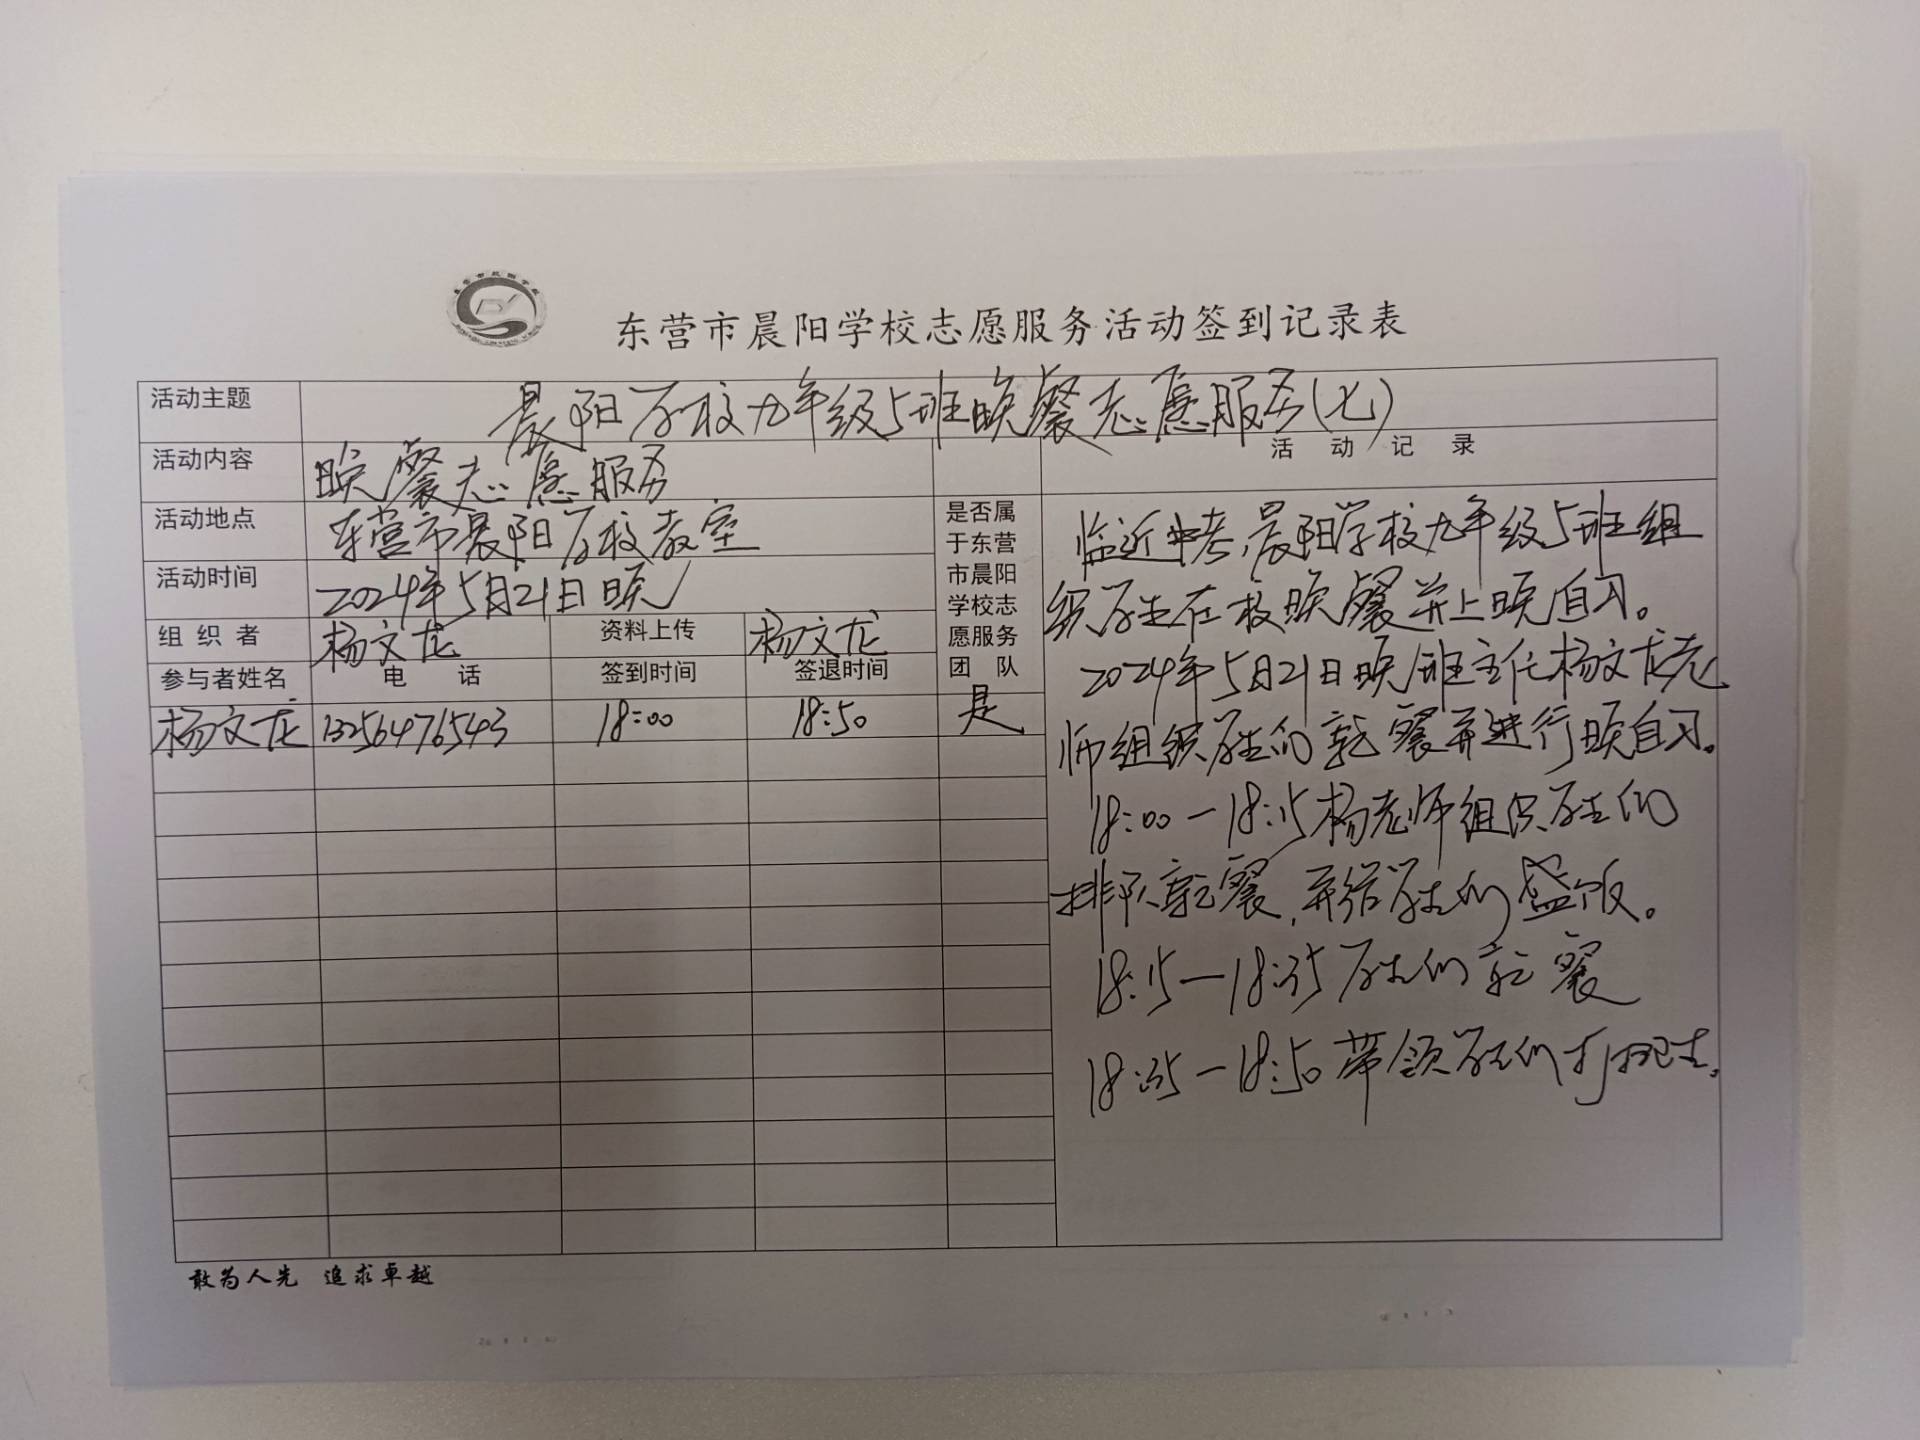 东营市晨阳学校志愿服务活动签到记录表
活动主题 晨阳学校九年级5班晚餐志愿服务(七)
活动内容 晚餐志愿服务
活动地点 东营市晨阳学校教室
活动时间 2024年5月21日晚
组织者 杨文龙 资料上传 杨文龙
参与者姓名 电话 签到时间 签退时间
是否属
于东营
市晨阳
学校志
愿服务
团队
杨文龙 13256476543 18:00 18:50 是
活动记录
临近中考,晨阳学校九年级5班组
织学生在校晚餐并上晚自习。
2024年5月21日晚,班主任杨文龙老
师组织学生们就餐并进行晚自习。
18:00-18:15杨老师组织学生们
排队就餐,并给学生们盛饭。
18:15-18:35学生们就餐
18:35-18:50带领学生们打扫卫生。
敢为人先 追求卓越